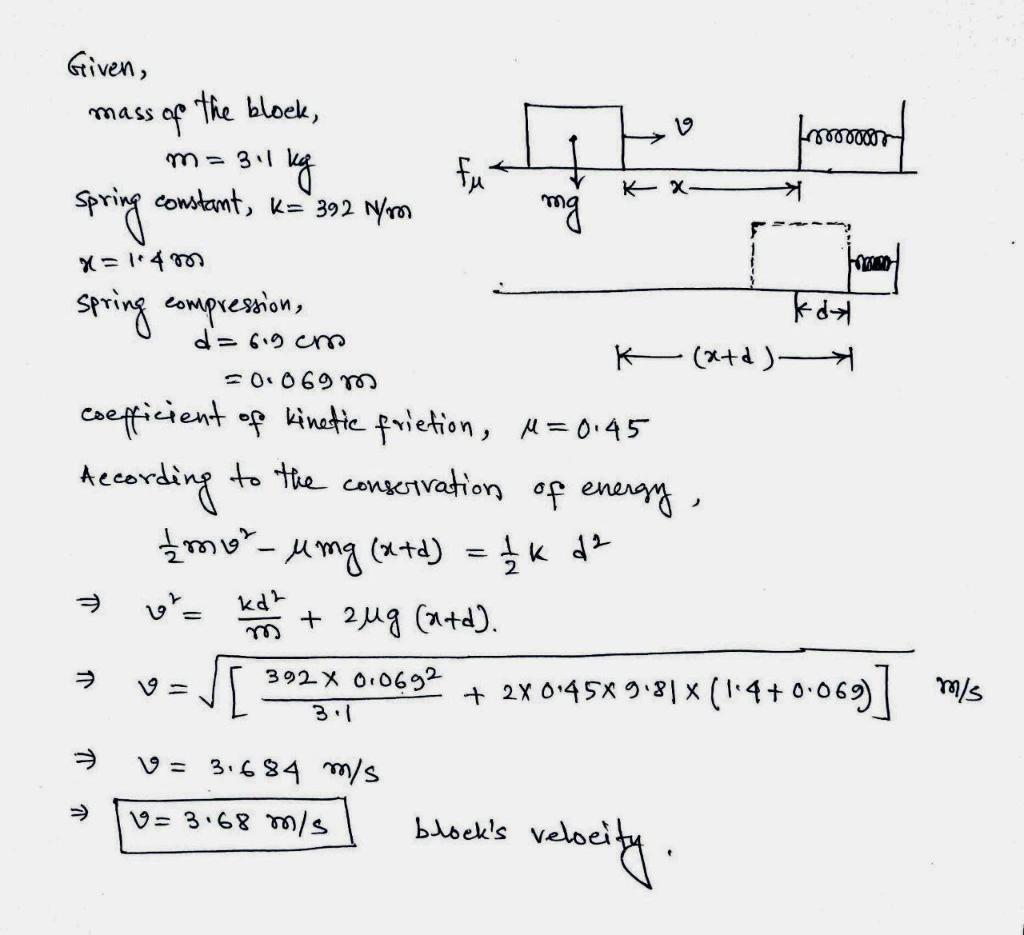 Given,
mass of the block,
m = 3.1 kg
spring constant, K = 392 N/m
x = 1.4 m
spring compression,
d = 6.9 cm
= 0.069 m
coefficient of kinetic friction, μ = 0.45
According to the conservation of energy,
½mv² - μmg (x+d) = ½ K d²
⇒ v² = kd²/m + 2μg (x+d).
⇒ v = √[ 392 X 0.069² / 3.1 + 2X 0.45X 9.81 X (1.4+0.069) ] m/s
⇒ v = 3.684 m/s
⇒ v = 3.68 m/s block's velocity.
v
fμ
mg
x
d
(x+d)